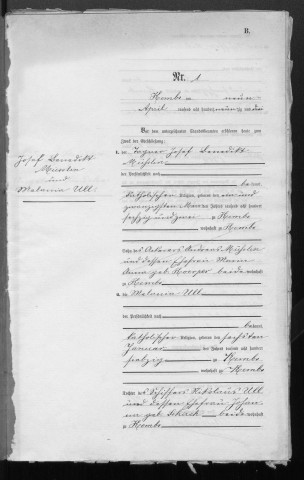 B.
Nr. 1
Kembs am neun
April tausend acht hundert neunzig und drei
Vor dem unterzeichneten Standesbeamten erschienen heute zum
Zweck der Eheschließung:
1. der Josef Benedikt
Josef Benedikt
und
Melania Ull
der Persönlichkeit nach
be kannt,
katholischer Religion, geboren den ein und
zwanzigsten März des Jahres tausend acht hundert
sechzig und zwei zu Kembs
wohnhaft zu Kembs
Sohn des Ackerers Andreas
und dessen Ehefrau Maria
Anna geb. beide wohnhaft
zu Kembs
2. die Melania Ull
der Persönlichkeit nach
be kannt,
katholischer Religion, geboren den sechsten
Januar des Jahres tausend acht hundert
siebzig zu Kembs
wohnhaft zu Kembs
Tochter des Schiffers Nikolaus Ull
und dessen Ehefrau Johan
na geb. beide wohnhaft
zu Kembs